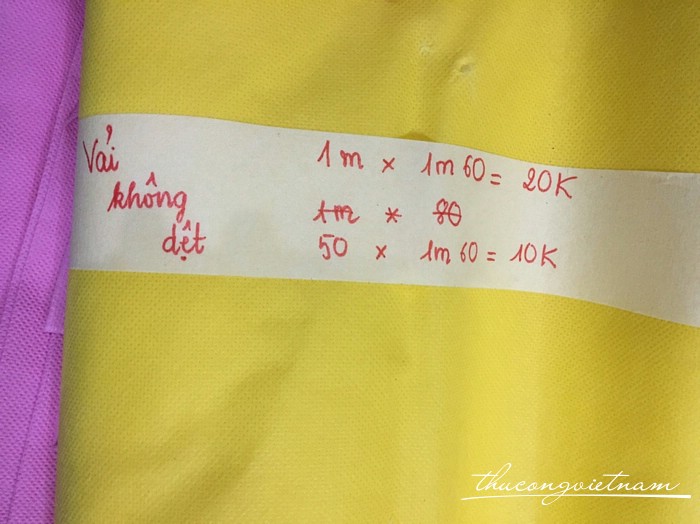 Vải
không
dệt
1m x 1m60 = 20K
1m x 80
50 x 1m60 = 10K
thucongvietnam